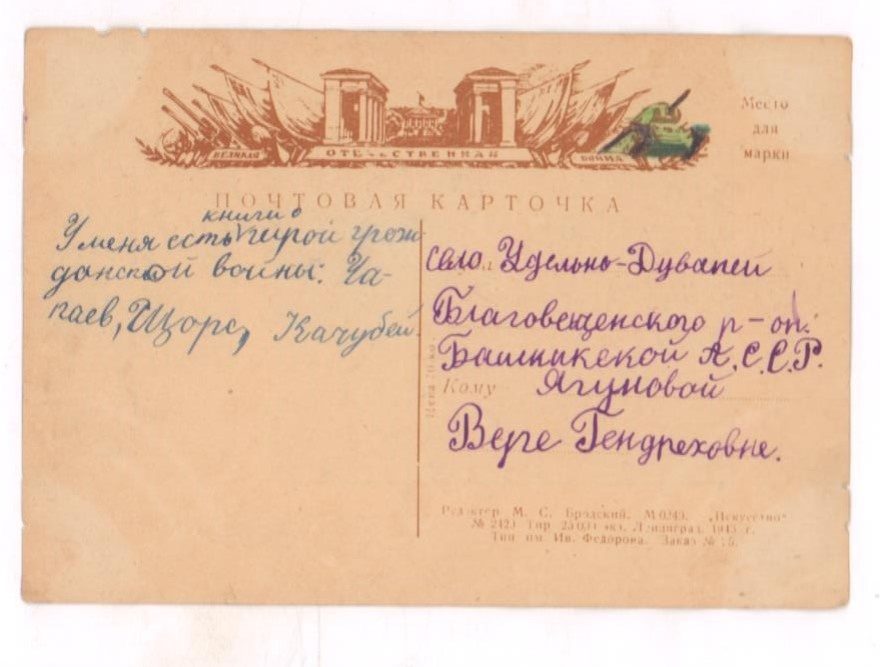 ВЕЛИКАЯ ОТЕЧЕСТВЕННАЯ ВОЙНА
Место
для
марки
ПОЧТОВАЯ КАРТОЧКА
У меня есть книги о герой грож-
данской войны: Ча-
паев, Щорс, Качубей.
село Удельно-Дувапей
Благовещенского р-он.
Башкикской А.С.С.Р.
Кому Ягуновой
Вере Гендреховне.
Редактер М. С. Бродский. „Искусство“
№ 2423 Тир. Ленинград, 1943 г.
Тип. им. Ив. Федорова. Заказ №